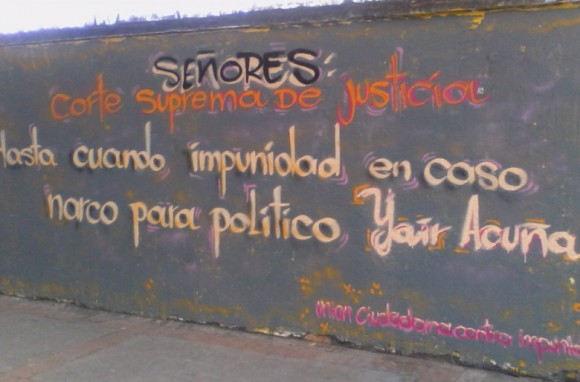 SEÑORES:
Corte Suprema De justicia
Hasta cuando impunidad en caso
narco para político Yair Acuña
Ciudadana contra